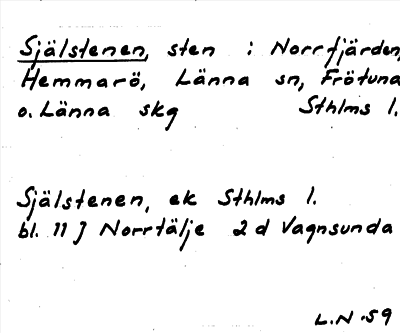 Själstenen, sten i Norrfjärden,
Hemmarö, Länna sn, Frötuna
o. Länna skg Sthlms l.
Själstenen, ek Sthlms l.
bl. 11 J Norrtälje 2 d Vagnsunda
L.N -59